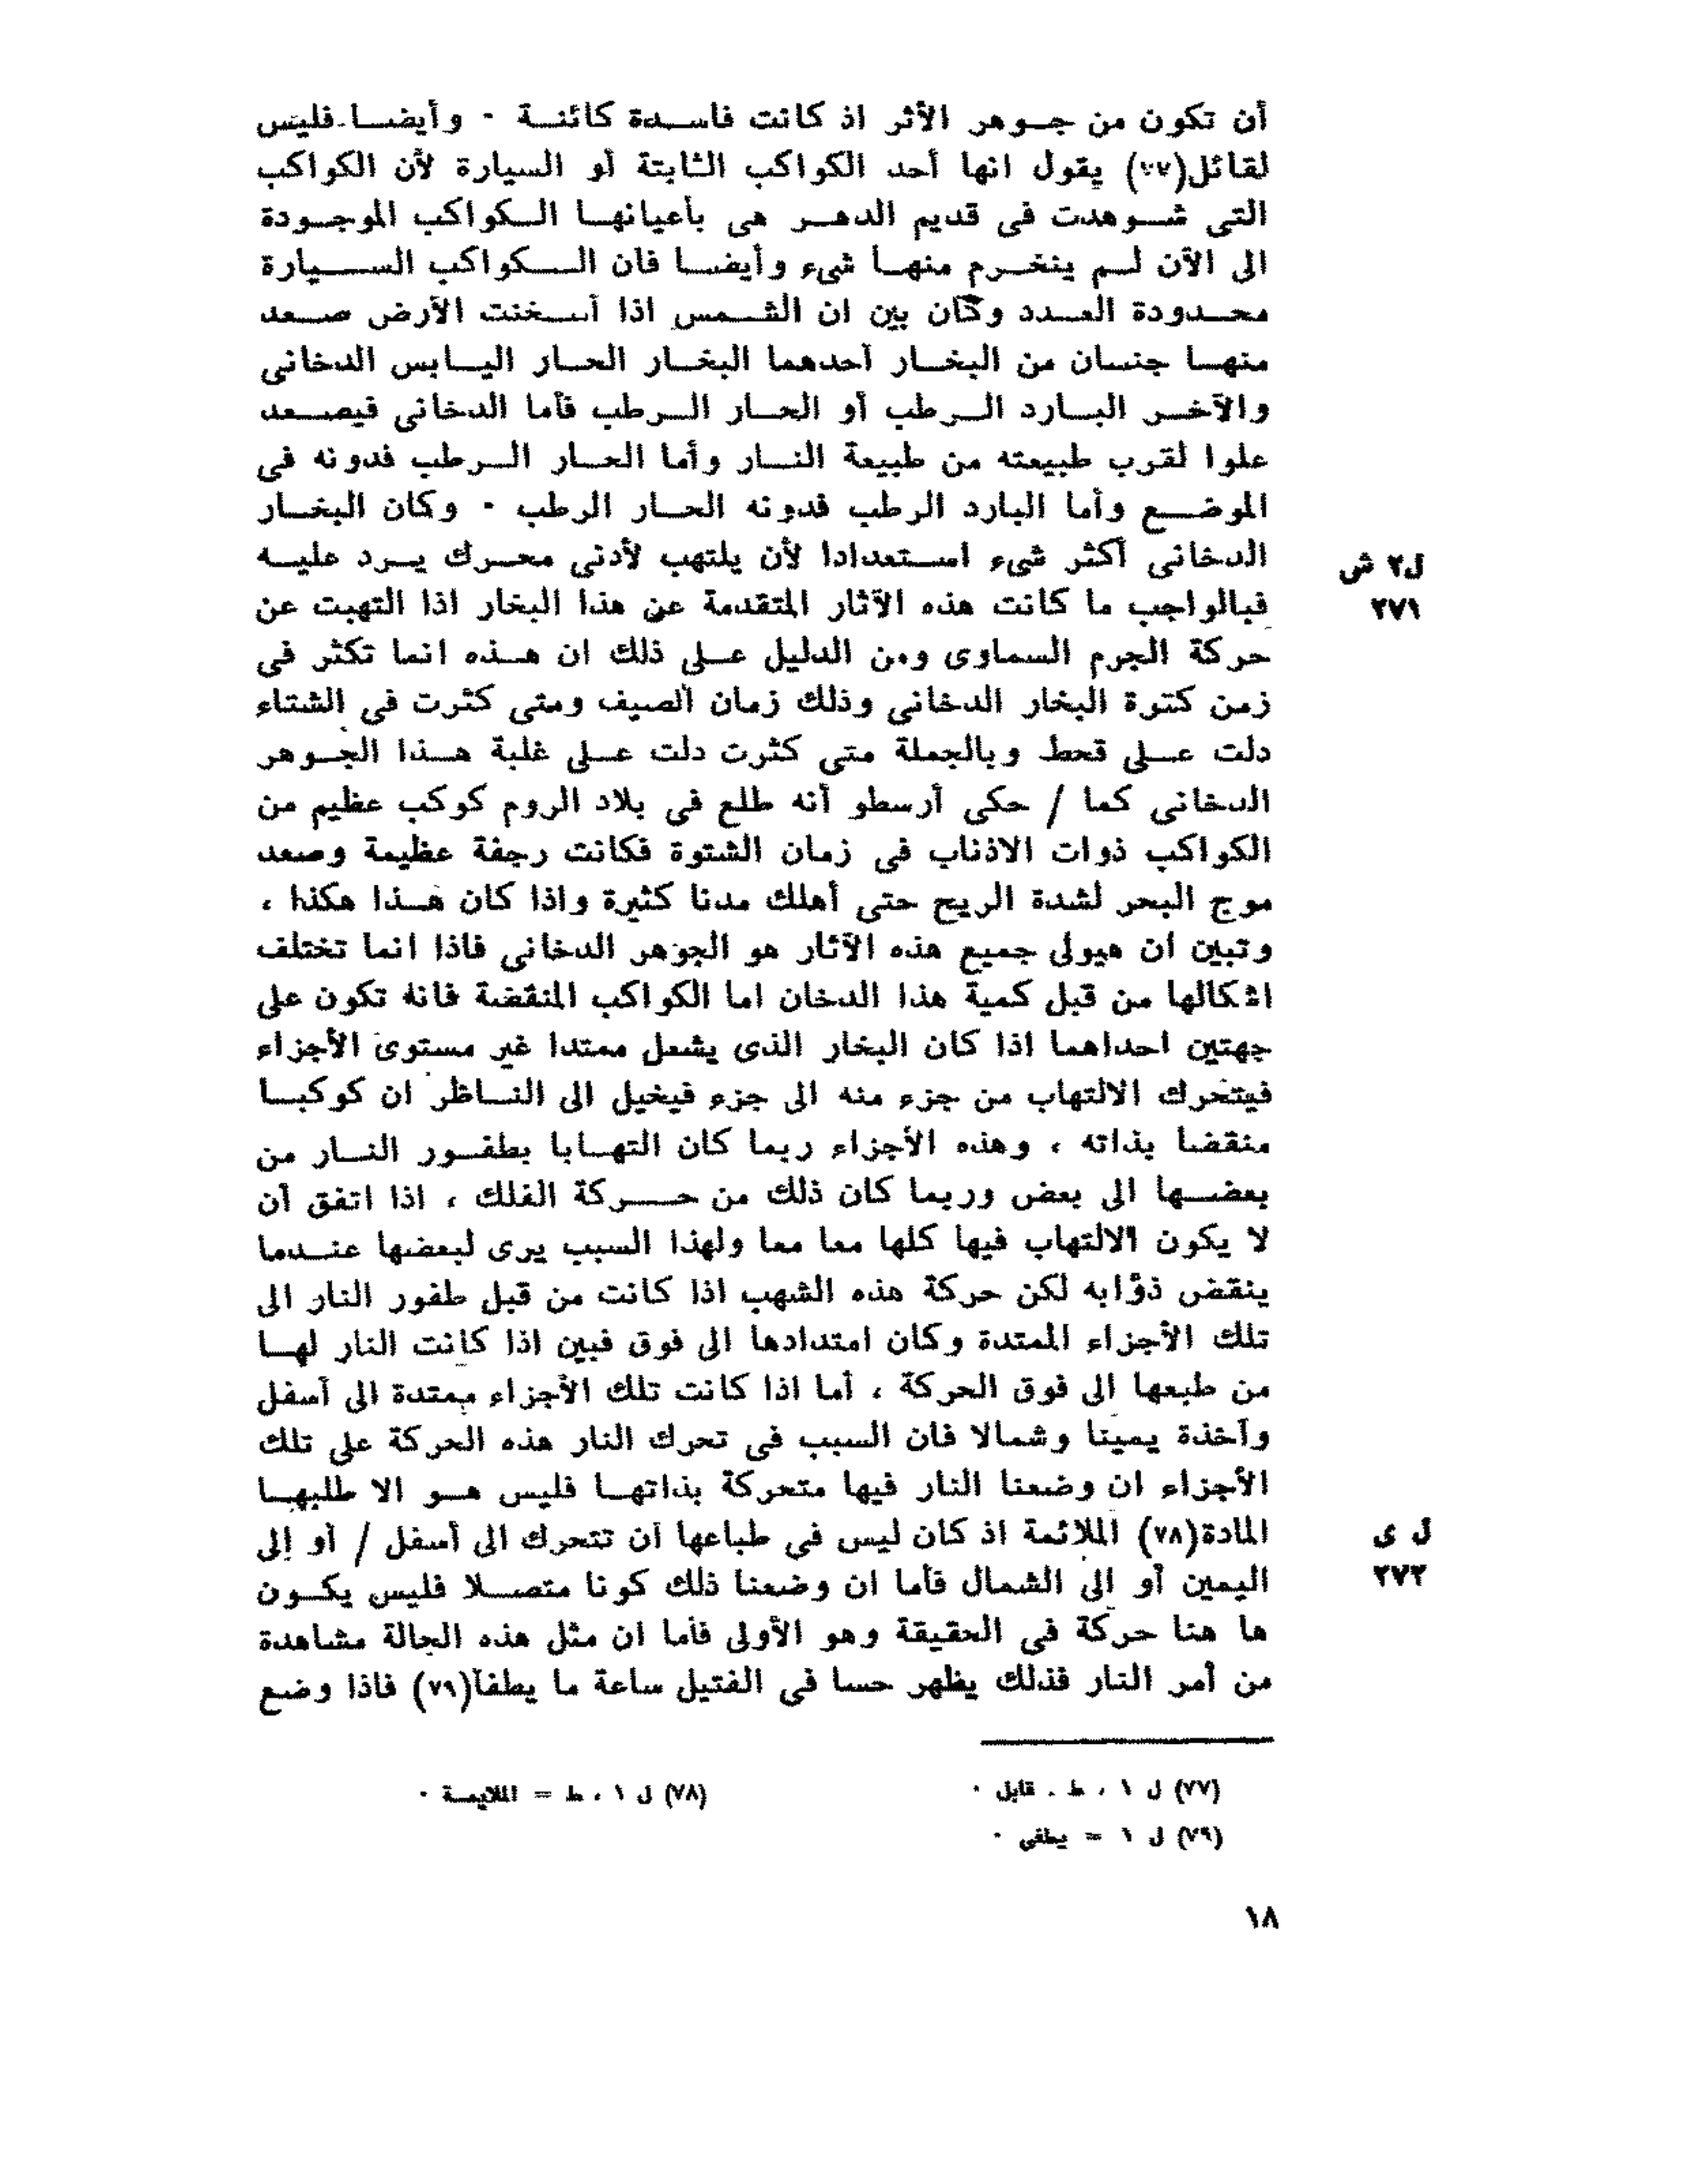 أن تكون من جوهر الأثر اذ كانت فاسدة كائنة ٠ وأيضا فليس
لقائل(٧٧) يقول انها أحد الكواكب الثابتة أو السيارة لأن الكواكب
التى شوهدت فى قديم الدهر هى بأعيانها الكواكب الموجودة
الى الآن لم ينخرم منها شىء وأيضا فان الكواكب السيارة
محدودة العدد وكان بين ان الشمس اذا أسخنت الأرض صعد
منها جنسان من البخار أحدهما البخار الحار اليابس الدخانى
والآخر البارد الرطب أو الحار الرطب فأما الدخانى فيصعد
علوا لقرب طبيعته من طبيعة النار وأما الحار الرطب فدونه فى
الموضع وأما البارد الرطب فدونه الحار الرطب ٠ وكان البخار
الدخانى أكثر شىء استعدادا لأن يلتهب لأدنى محرك يرد عليه
ل٢ ش
فبالواجب ما كانت هذه الآثار المتقدمة عن هذا البخار اذا التهبت عن
٢٧١
حركة الجرم السماوى ومن الدليل على ذلك ان هذه انما تكثر فى
زمن كثرة البخار الدخانى وذلك زمان الصيف ومتى كثرت فى الشتاء
دلت على قحط وبالجملة متى كثرت دلت على غلبة هذا الجوهر
الدخانى كما / حكى أرسطو أنه طلع فى بلاد الروم كوكب عظيم من
الكواكب ذوات الاذناب فى زمان الشتوة فكانت رجفة عظيمة وصعد
موج البحر لشدة الريح حتى أهلك مدنا كثيرة واذا كان هذا هكذا ،
وتبين ان هيولى جميع هذه الآثار هو الجوهر الدخانى فاذا انما تختلف
اشكالها من قبل كمية هذا الدخان اما الكواكب المنقضة فانه تكون على
جهتين احداهما اذا كان البخار الذى يشعل ممتدا غير مستوى الأجزاء
فيتحرك الالتهاب من جزء منه الى جزء فيخيل الى الناظر ان كوكبا
منقضا بذاته ، وهذه الأجزاء ربما كان التهابا بطفور النار من
بعضها الى بعض وربما كان ذلك من حركة الفلك ، اذا اتفق أن
لا يكون الالتهاب فيها كلها معا معا ولهذا السبب يرى لبعضها عندما
ينقض ذؤابه لكن حركة هذه الشهب اذا كانت من قبل طفور النار الى
تلك الأجزاء الممتدة وكان امتدادها الى فوق فبين اذا كانت النار لها
من طبعها الى فوق الحركة ، أما اذا كانت تلك الأجزاء ممتدة الى أسفل
وآخذة يمينا وشمالا فان السبب فى تحرك النار هذه الحركة على تلك
الأجزاء ان وضعنا النار فيها متحركة بذاتها فليس هو الا طلبها
المادة(٧٨) الملائمة اذ كان ليس فى طباعها ان تتحرك الى أسفل / أو إلى
ل ى
اليمين أو الى الشمال فأما ان وضعنا ذلك كونا متصلا فليس يكون
٢٧٢
ها هنا حركة فى الحقيقة وهو الأولى فأما ان مثل هذه الحالة مشاهدة
من أمر النار فذلك يظهر حسا فى الفتيل ساعة ما يطفأ(٧٩) فاذا وضع
(٧٧) ل ١ ، ط . قابل ٠
(٧٨) ل ١ ، ط = الملايمة ٠
(٧٩) ل ١ = يطفى ٠
١٨